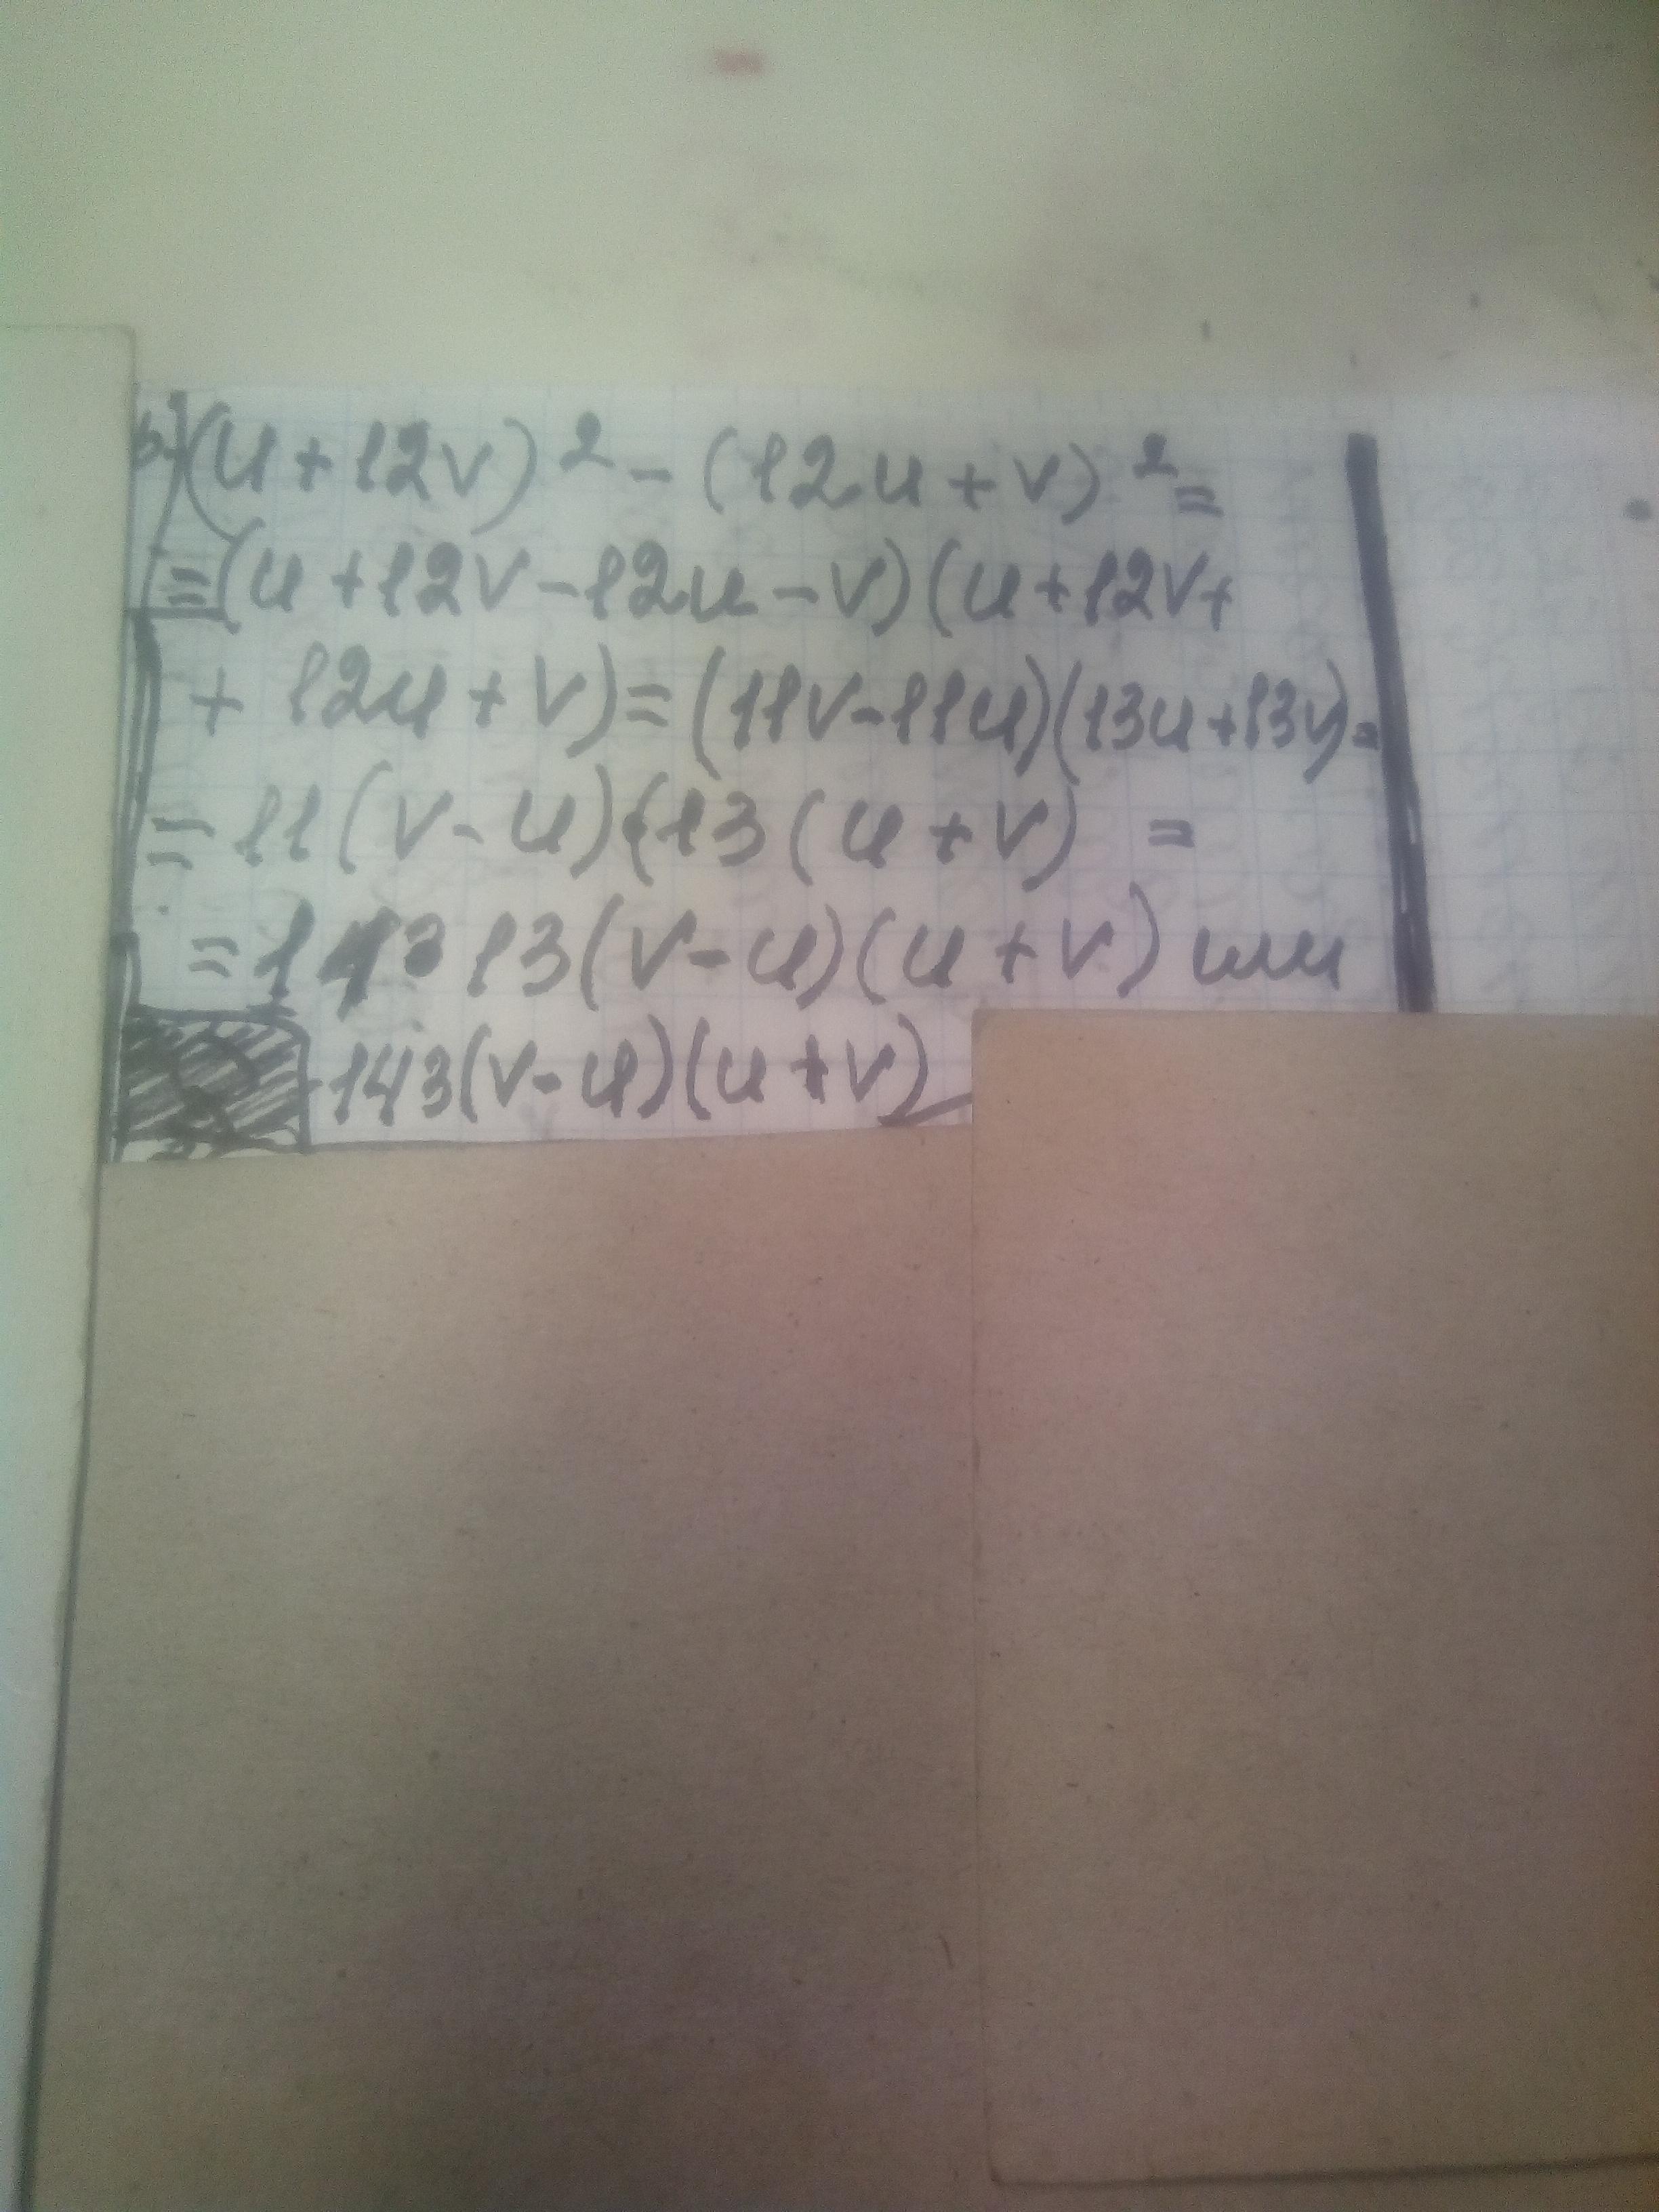 б) (u+12v)² - (12u+v)² =
= (u+12v-12u-v)(u+12v+
+ 12u+v) = (11v-11u)(13u+13v) =
= 11(v-u)·13(u+v) =
= 11·13(v-u)(u+v) или
143(v-u)(u+v)